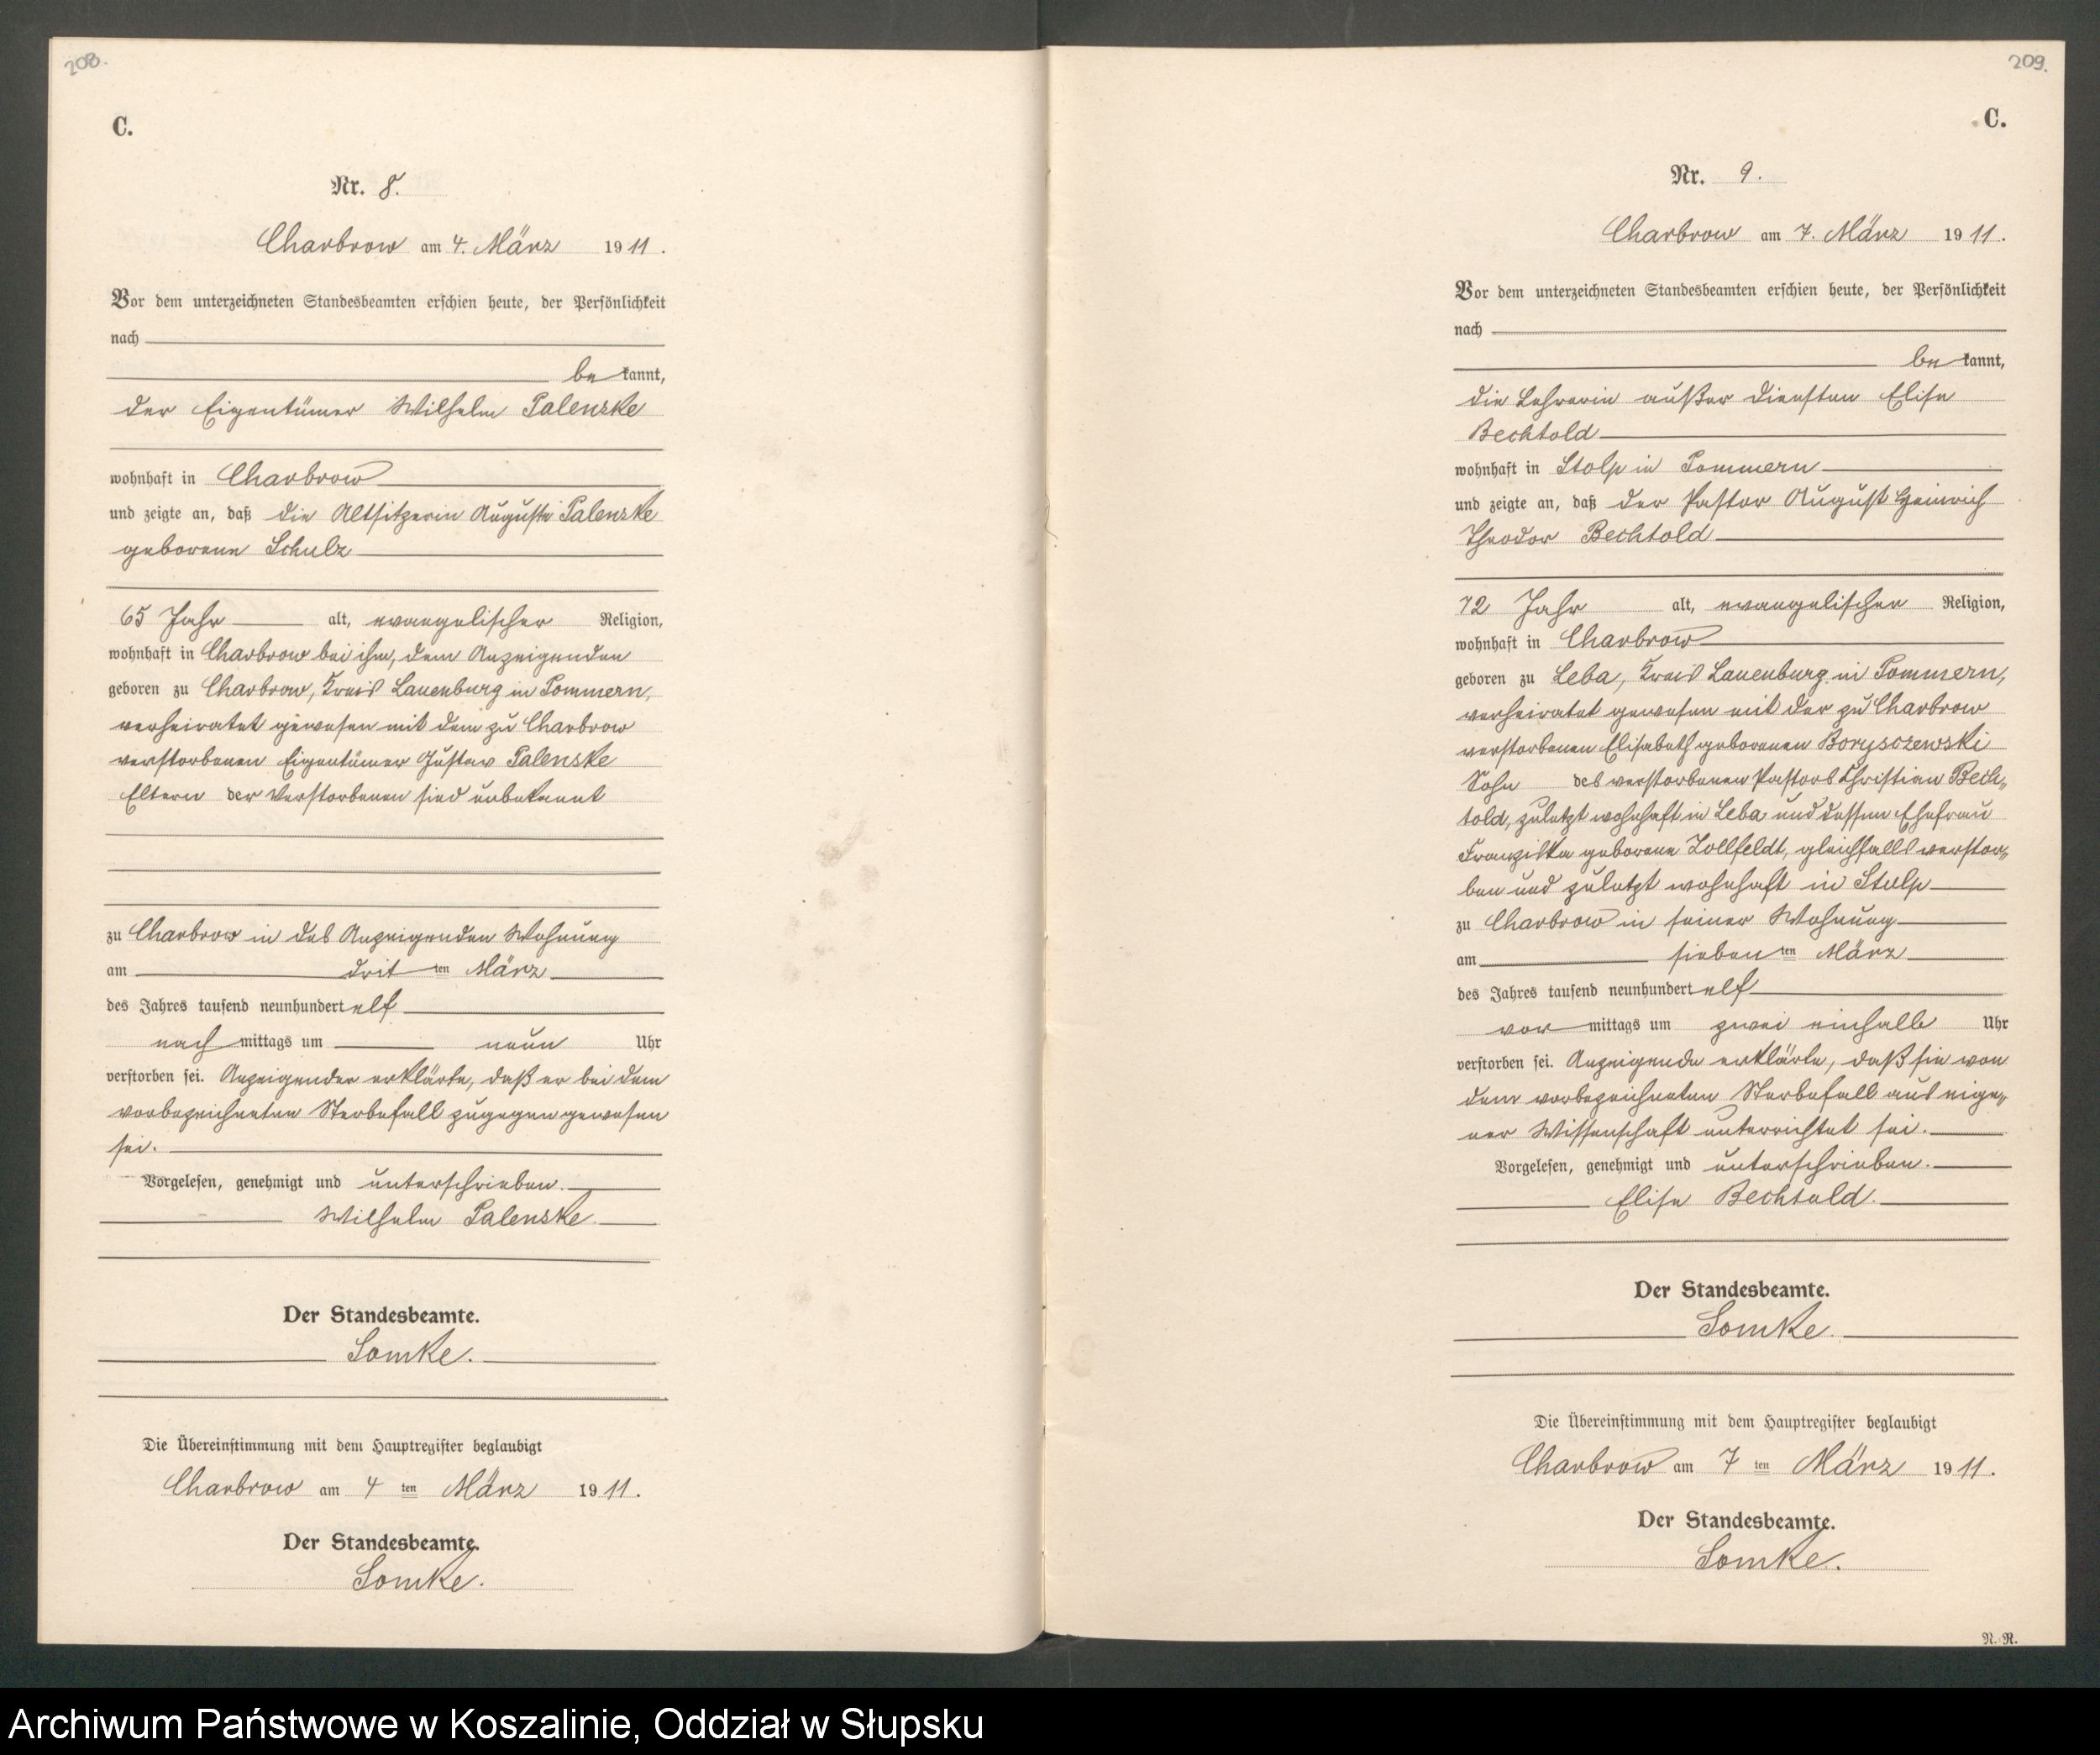 208.
C.
Nr. 8.
Charbrow am 4. März 1911.
Vor dem unterzeichneten Standesbeamten erschien heute, der Persönlichkeit
nach
be kannt,
der Eigentümer Wilhelm Palenske
wohnhaft in Charbrow
und zeigte an, daß die Altsitzerin Auguste Palenske
geborene Schulz
65 Jahr alt, evangelischer Religion,
wohnhaft in Charbrow bei ihm, dem Anzeigenden
geboren zu Charbrow, Kreis Lauenburg in Pommern,
verheiratet gewesen mit dem zu Charbrow
verstorbenen Eigentümer Gustav Palenske
Eltern der Verstorbenen sind unbekannt
zu Charbrow in des Anzeigenden Wohnung
am drit ten März
des Jahres tausend neunhundert elf
nach mittags um neun Uhr
verstorben sei. Anzeigender erklärte, daß er bei dem
vorbezeichneten Sterbefall zugegen gewesen
sei.
Vorgelesen, genehmigt und unterschrieben.
Wilhelm Palenske.
Der Standesbeamte.
Lomke.
Die Übereinstimmung mit dem Hauptregister beglaubigt
Charbrow am 4 ten März 1911.
Der Standesbeamte.
Lomke.
209.
C.
Nr. 9.
Charbrow am 7. März 1911.
Vor dem unterzeichneten Standesbeamten erschien heute, der Persönlichkeit
nach
be kannt,
die Lehrerin außer Diensten Elise
Bechtold
wohnhaft in Stolp in Pommern
und zeigte an, daß der Pastor August Heinrich
Theodor Bechtold
72 Jahr alt, evangelischer Religion,
wohnhaft in Charbrow
geboren zu Leba, Kreis Lauenburg in Pommern,
verheiratet gewesen mit der zu Charbrow
verstorbenen Elisabeth geborenen Borysczewski
Sohn des verstorbenen Pastors Christian Bech„
told, zuletzt wohnhaft in Leba und dessen Ehefrau
Franziska geborene Zollfeldt, gleichfalls verstor„
ben und zuletzt wohnhaft in Stolp
zu Charbrow in seiner Wohnung
am sieben ten März
des Jahres tausend neunhundert elf
vor mittags um zwei einhalb Uhr
verstorben sei. Anzeigende erklärte, daß sie von
dem vorbezeichneten Sterbefall aus eige„
ner Wissenschaft unterrichtet sei.
Vorgelesen, genehmigt und unterschrieben.
Elise Bechtold.
Der Standesbeamte.
Lomke.
Die Übereinstimmung mit dem Hauptregister beglaubigt
Charbrow am 7 ten März 1911.
Der Standesbeamte.
Lomke.
N. R.
Archiwum Państwowe w Koszalinie, Oddział w Słupsku